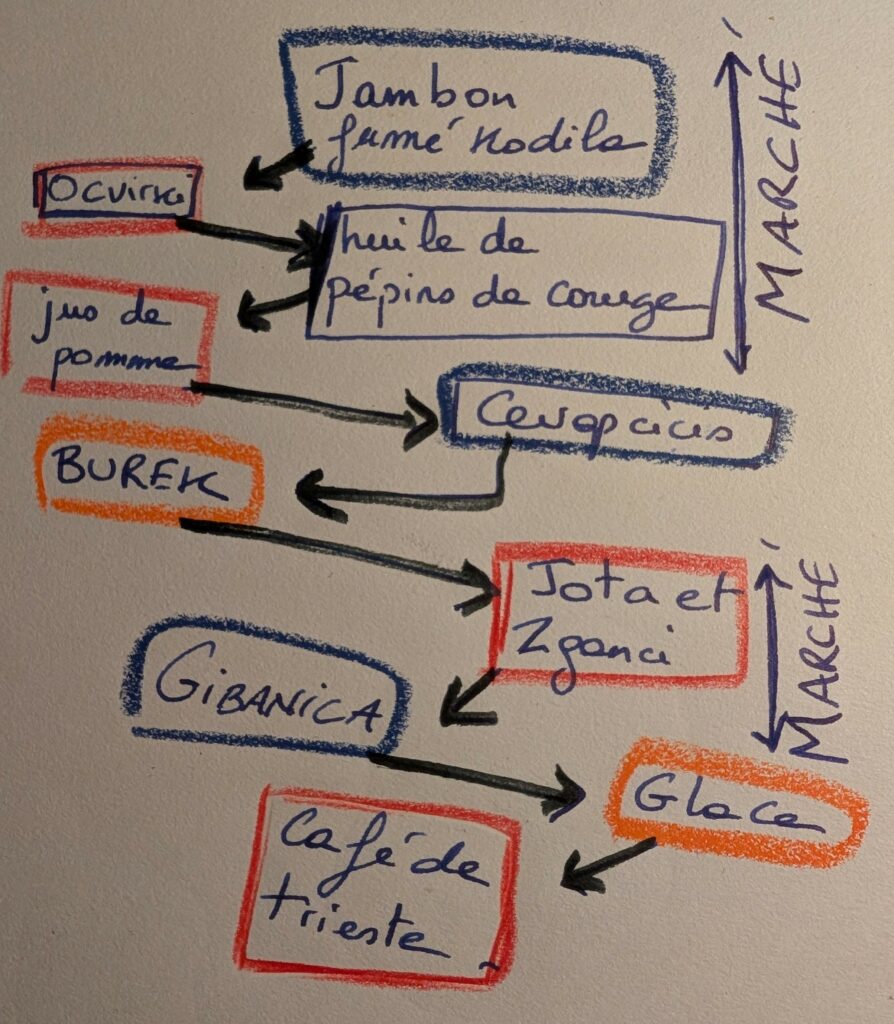 Jambon
fumé Kodila
Ocvirki
huile de
pépins de courge
jus de
pomme
Cevapcicis
BUREK
Jota et
Zganci
GIBANICA
Glace
Café de
trieste
MARCHE
MARCHE